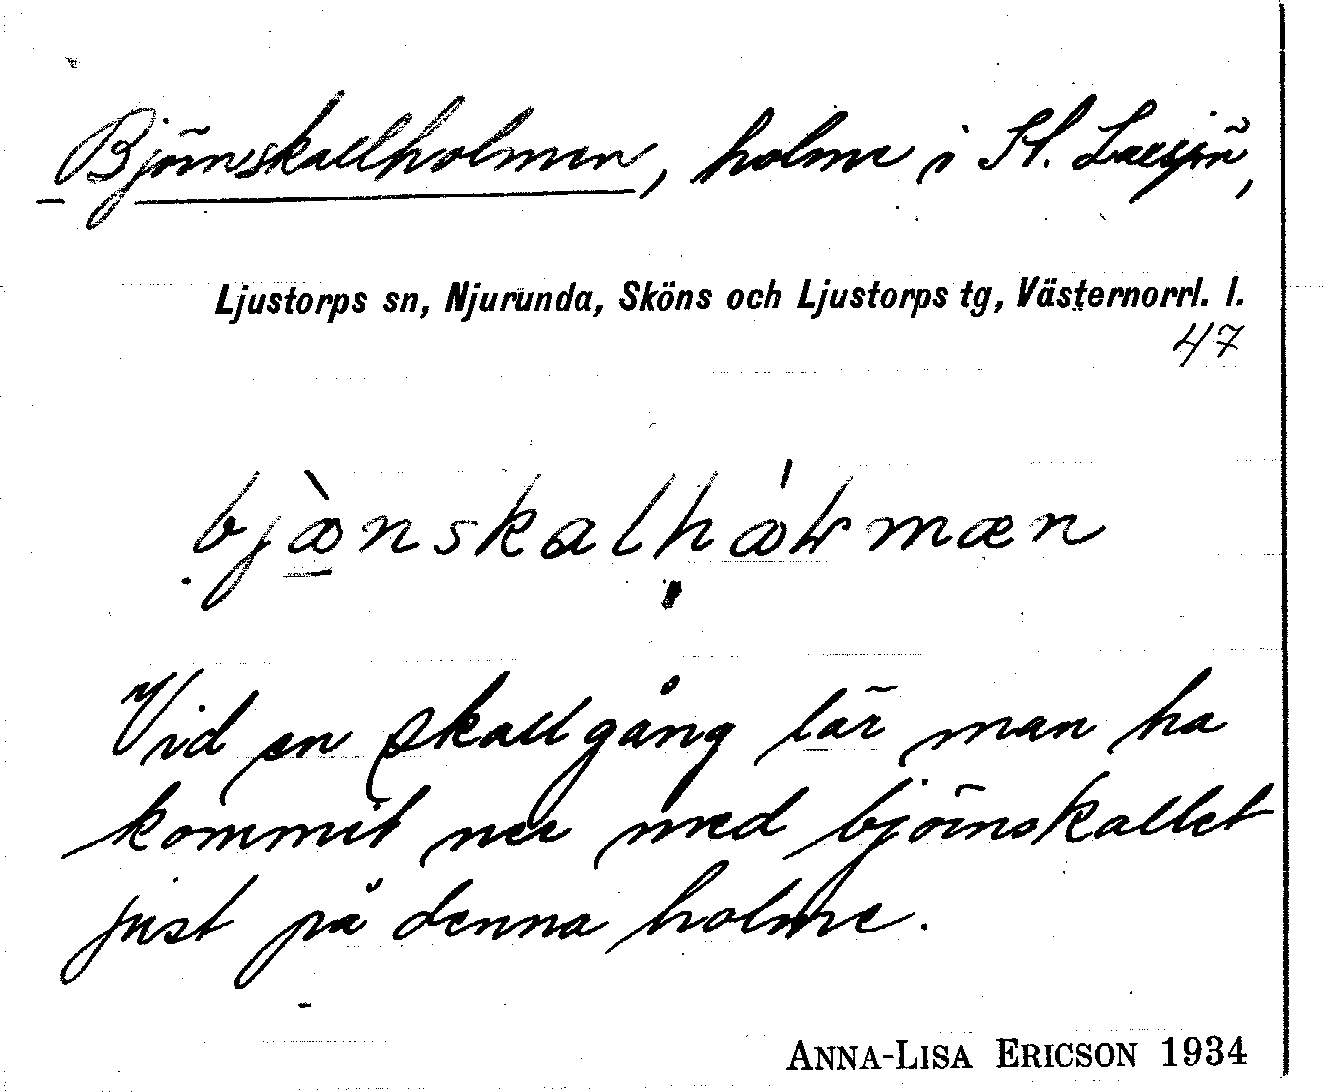 Björnskallholmen, holme i St. Laxsjön,
Ljustorps sn, Njurunda, Sköns och Ljustorps tg, Västernorrl. l.
47
bjæ̀nskalhåɫmæn
Vid en skallgång lär man ha
kommit ner med björnskallet
just på denna holme.
ANNA-LISA ERICSON 1934